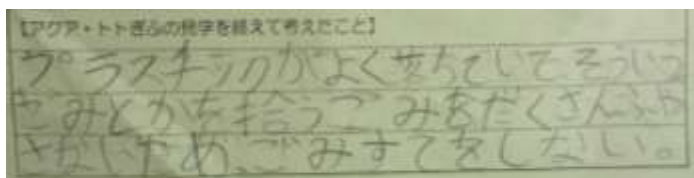 【アクア・トトぎふの見学を終えて考えたこと】
プラスチックがよく落ちていてそういっ
たごみとかを拾うごみをだくさんふや
さないやめ、ごみすてをしない。